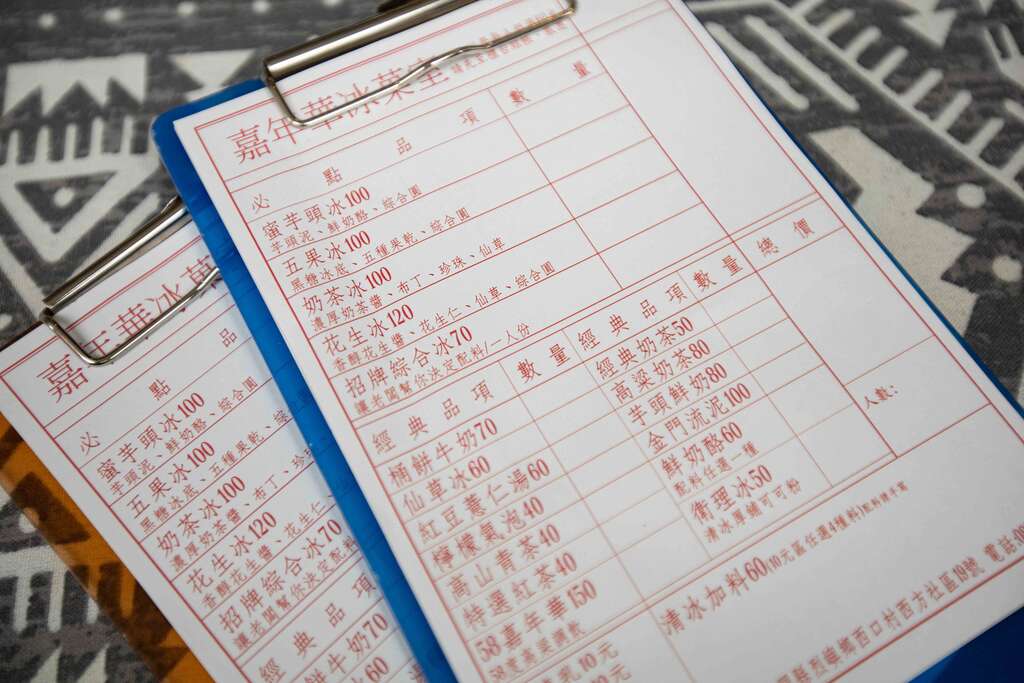 嘉年華冰菓室
必點品項 數量
蜜芋頭冰100
芋頭泥、鮮奶酪、綜合圓
五果冰100
黑糖冰底、五種果乾、綜合圓
奶茶冰100
濃厚奶茶醬、布丁、珍珠、仙草
花生冰120
香醇花生醬、花生仁、仙草、綜合圓
招牌綜合冰70
讓老闆幫你決定配料/一人份
經典品項 數量 經典品項 數量 總價
桶餅牛奶70
仙草冰60
紅豆薏仁湯60
檸檬氣泡40
高山青茶40
特選紅茶40
58嘉年華150
58度高粱調飲
乳10元
元
經典奶茶50
高粱奶茶80
芋頭鮮奶80
金門流泥100
鮮奶酪60
配料任選一種
衛理冰50
清冰厚鋪可可粉
人數:
清冰加料60(10元區任選4種料)
縣烈嶼鄉西口村西方社區19號 電話
嘉年華冰菓
必點品
蜜芋頭冰100
芋頭泥、鮮奶酪、綜合圓
五果冰100
黑糖冰底、五種果乾、綜
奶茶冰100
濃厚奶茶醬、布丁、珍
花生冰120
香醇花生醬、花生仁、
招牌綜合冰70
讓老闆幫你決定配
經典品項
餅牛奶70
60